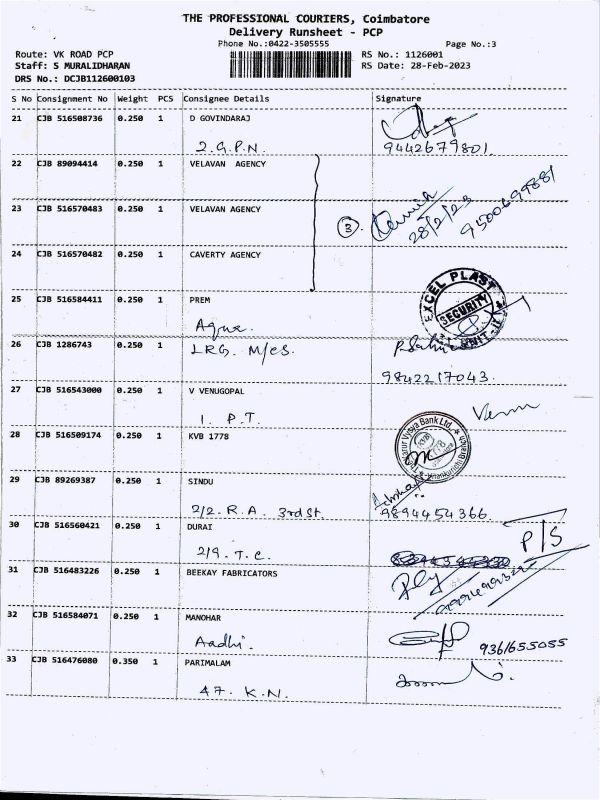 THE PROFESSIONAL COURIERS, Coimbatore
Delivery Runsheet - PCP
Phone No.:0422-3505555 Page No.:3
Route: VK ROAD PCP RS No.: 1126001
Staff: S MURALIDHARAN RS Date: 28-Feb-2023
DRS No.: DCJB112600103
S No Consignment No Weight PCS Consignee Details Signature
21 CJB 516508736 0.250 1 D GOVINDARAJ
2. G.P.N. 9442679801.
22 CJB 89094414 0.250 1 VELAVAN AGENCY
23 CJB 516570483 0.250 1 VELAVAN AGENCY
3. 28/2/23 9500699881
24 CJB 516570482 0.250 1 CAVERTY AGENCY
25 CJB 516584411 0.250 1 PREM
EXCEL PLAST SECURITY UNIT-II
Aqua.
26 CJB 1286743 0.250 1 LRG. M/cs.
9842217043.
27 CJB 516543000 0.250 1 V VENUGOPAL
1. P.T.
28 CJB 516509174 0.250 1 KVB 1778
Vysya Bank Ltd.
29 CJB 89269387 0.250 1 SINDU
2/2. R.A. 3rd St. 9894454366
30 CJB 516560421 0.250 1 DURAI
2/9. T.C. P/S
31 CJB 516483226 0.250 1 BEEKAY FABRICATORS
32 CJB 516584071 0.250 1 MANOHAR
Aadhi. 9361655055
33 CJB 516476080 0.350 1 PARIMALAM
47. K.N.